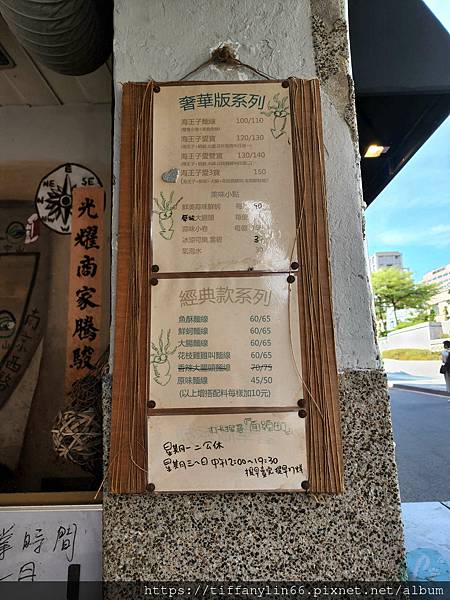 奢華版系列
海王子麵線 100/110
海王子愛寶 120/130
海王子愛雙寶 130/140
海王子愛3寶 150
涼味小點
鮮美蒜味鮮蚵
大腸頭
涼味小卷
冰涼可樂.雪碧
氣泡水 30
經典款系列
魚酥麵線 60/65
鮮蚵麵線 60/65
大腸麵線 60/65
花枝雞雞叫麵線 60/65
香辣大腸頭麵線 70/75
原味麵線 45/50
(以上增搭配料每樣加10元)
星期一二公休
星期三~日 中午12:00~19:30
提早賣完提早打烊
光耀商家騰駿
SE
業時間
https://tiffanylin66.pixnet.net/album